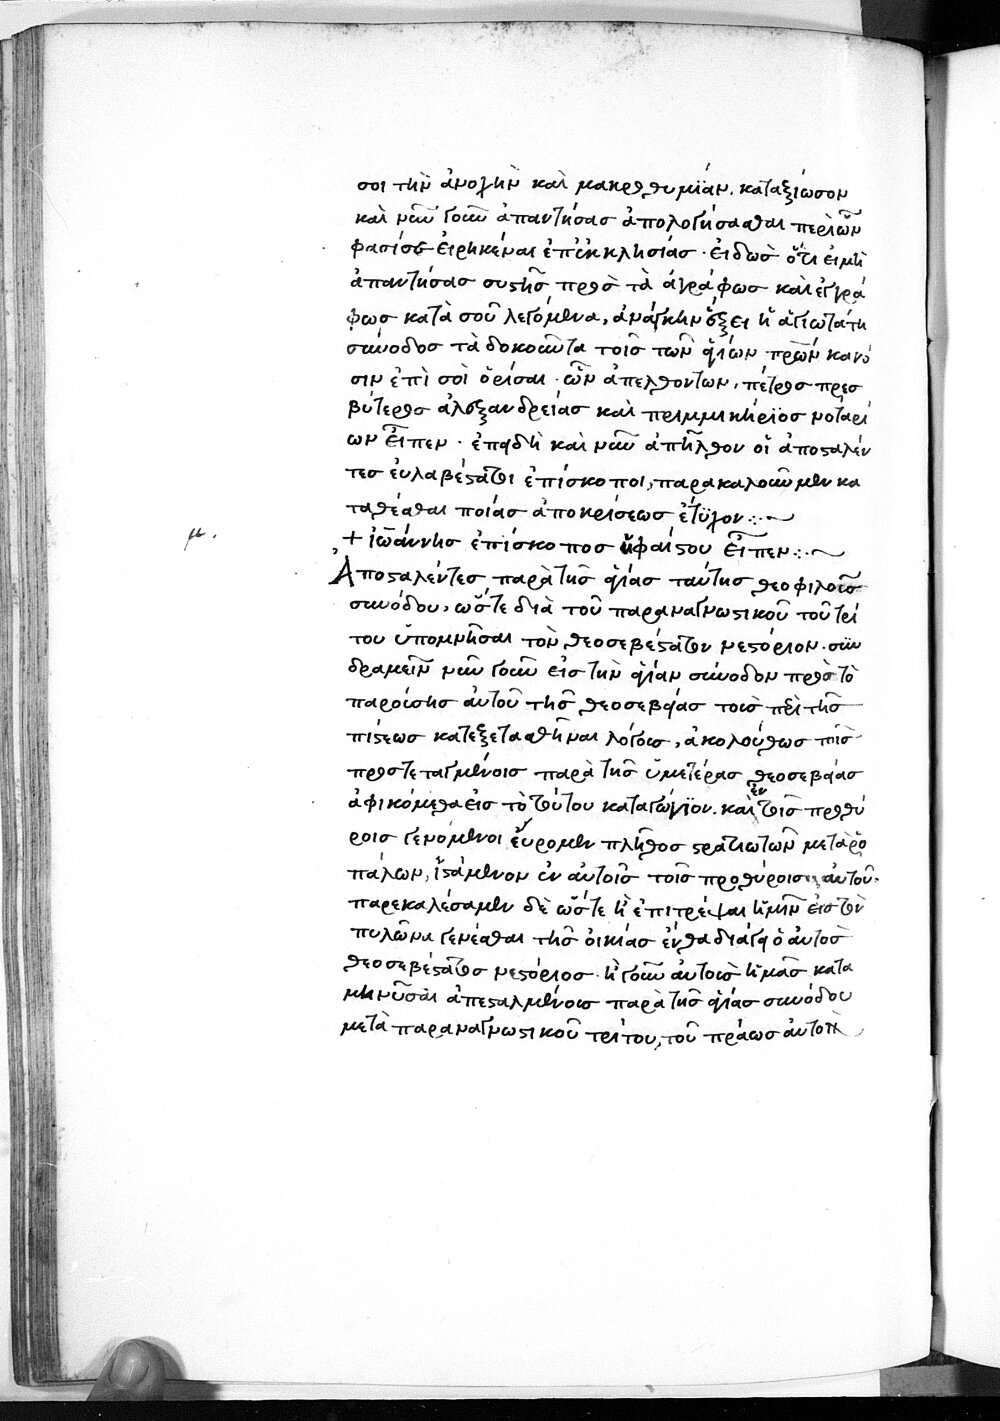 σοι τὴν ἀνοχὴν καὶ μακροθυμίαν. καταξίωσον
καὶ νῦν γοῦν ἀπαντήσας ἀπολογήσασθαι περὶ ὧν
φασί σε εἰρηκέναι ἐπ' ἐκκλησίας · εἰδὼς ὅτι εἰ μὴ
ἀπαντήσας συστῇς πρὸς τὰ ἀγράφως καὶ ἐγγρά
φως κατὰ σοῦ λεγόμενα, ἀνάγκην ἕξει ἡ ἁγιωτάτη
σύνοδος τὰ δοκοῦντα τοῖς τῶν ἁγίων πρων κανό
σιν ἐπὶ σοὶ ὁρίσαι · ὧν ἀπελθόντων, πέτρος πρεσ
βύτερος ἀλεξανδρείας καὶ πριμμικήριος νοταρί
ων εἶπεν · ἐπειδὴ καὶ νῦν ἀπῆλθον οἱ ἀποσταλέν
τες εὐλαβέστατοι ἐπίσκοποι, παρακαλοῦμεν κα
ταθέσθαι ποίας ἀποκρίσεως ἔτυχον :~
μ.
+ ἰωάννης ἐπίσκοπος ἡφαίστου εἶπεν :~
Ἀποσταλέντες παρὰ τῆς ἁγίας ταύτης θεοφιλοῦς
συνόδου, ὥστε διὰ τοῦ παραναγνωστικοῦ τοῦ τρί
του ὑπομνῆσαι τὸν θεοσεβέστατον νεστόριον · συν
δραμεῖν νῦν γοῦν εἰς τὴν ἁγίαν σύνοδον πρὸς τὸ
παρούσης αὐτοῦ τῆς θεοσεβείας τοὺς περὶ τῆς
πίστεως κατεξετασθῆναι λόγους, ἀκολούθως τοῖς
προστεταγμένοις παρὰ τῆς ὑμετέρας θεοσεβείας
ἀφικόμεθα εἰς τὸ τούτου καταγώγιον. καὶ ἐν τοῖς προθύ
ροις γενόμενοι εὕρομεν πλῆθος στρατιωτῶν μετὰ ῥο
πάλων, ἱστάμενον ἐν αὐτοῖς τοῖς προθύροις αὐτοῦ ·
παρεκαλέσαμεν δὲ ὥστε ἢ ἐπιτρέψαι ἡμῖν εἰς τὸν
πυλῶνα γενέσθαι τῆς οἰκίας ἔνθα διάγει ὁ αὐτὸς
θεοσεβέστατος νεστόριος · ἢ γοῦν αὐτοὺς ἡμᾶς κατα
μηνῦσαι ἀπεσταλμένους παρὰ τῆς ἁγίας συνόδου
μετὰ παραναγνωστικοῦ τρίτου, τοῦ πράως αὐτὸν